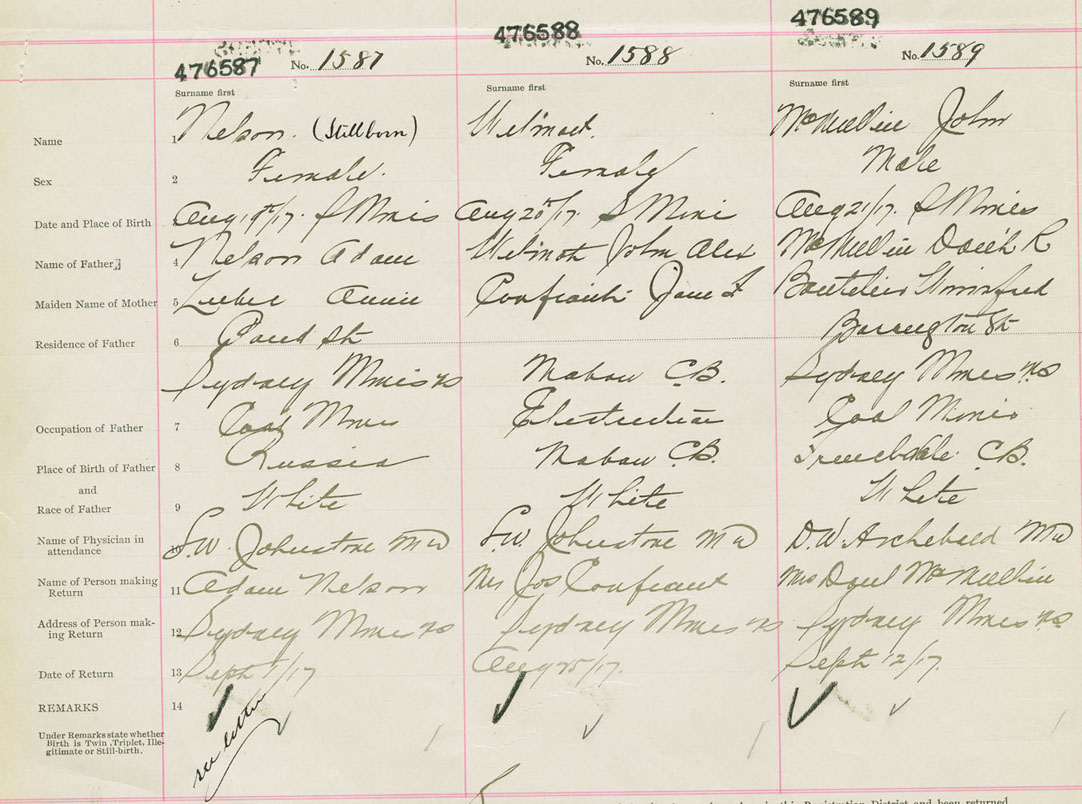 476587 476588 476589
No. 1587 No. 1588 No. 1589
Surname first Surname first Surname first
Name 1 Nelson. (Stillborn) Wilmot. McMullin John
Sex 2 Female. Female Male
Date and Place of Birth Aug 19th/17. S Mines Aug 20th/17. S Mines Aug 21/17. S Mines
Name of Father 4 Nelson Adam Wilmot John Alex McMullin Dan'l R
Maiden Name of Mother 5 Annie Confiant Jane Boutilier Winnifred
Residence of Father 6 Pond St Barrington St
Sydney Mines NS Mabou C.B. Sydney Mines NS
Occupation of Father 7 Coal Miner Electrician Coal Miner
Place of Birth of Father 8 Russia Mabou C.B. C.B.
and
Race of Father 9 White White White
Name of Physician in attendance 10 S.W. Johnstone MD S.W. Johnstone MD D.W. Archibald MD
Name of Person making Return 11 Adam Nelson Mrs Jos Confiant Mrs Danl McMullin
Address of Person making Return 12 Sydney Mines NS Sydney Mines NS Sydney Mines NS
Date of Return 13 Sept 1/17 Aug 25/17. Sept 12/17.
REMARKS 14
see letter
Under Remarks state whether
Birth is Twin, Triplet, Ille-
gitimate or Still-birth.
in this Registration District and been returned